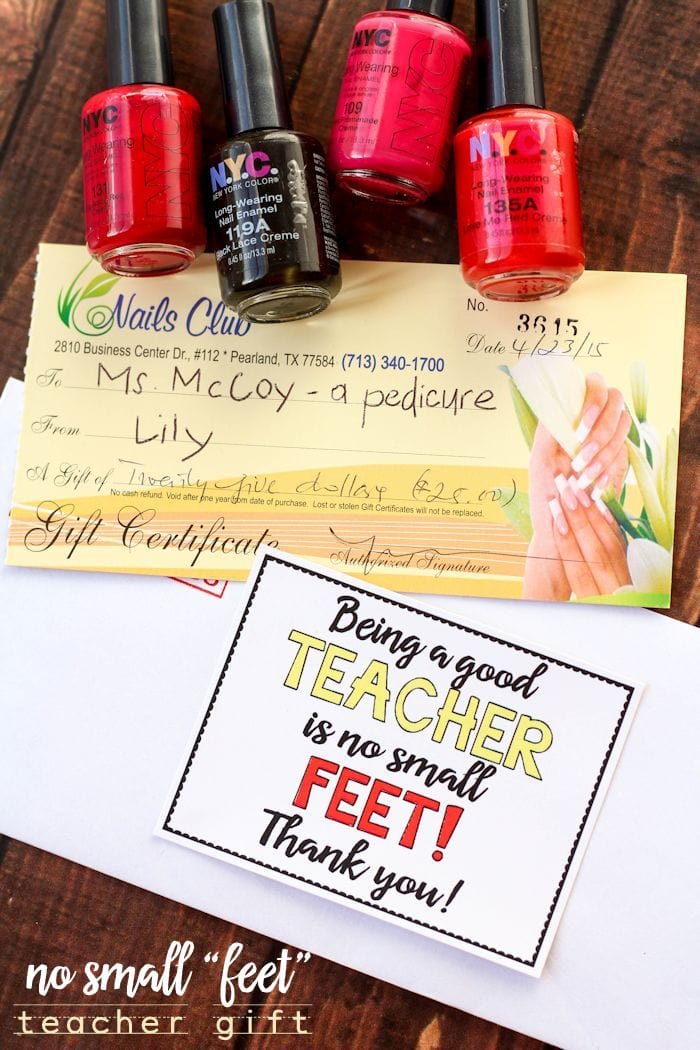 NYC
Long-Wearing
131
NYC
N.Y.C.
NEW YORK COLOR®
Long-Wearing
Nail Enamel
119A
Black Lace Creme
0.45 fl oz/13.3 ml
NYC
Long-Wearing
109
Creme
NYC
NYC
Long-Wearing
Nail Enamel
135A
Love Me Red Creme
Nails Club
2810 Business Center Dr., #112 * Pearland, TX 77584 (713) 340-1700
No. 3615
Date 4/23/15
To Ms. McCoy - a pedicure
From Lily
A Gift of Twenty five dollars ($25.00)
No cash refund. Void after one year from date of purchase. Lost or stolen Gift Certificates will not be replaced.
Gift Certificate
Authorized Signature
Being a good
TEACHER
is no small
FEET!
Thank you!
no small "feet"
teacher gift